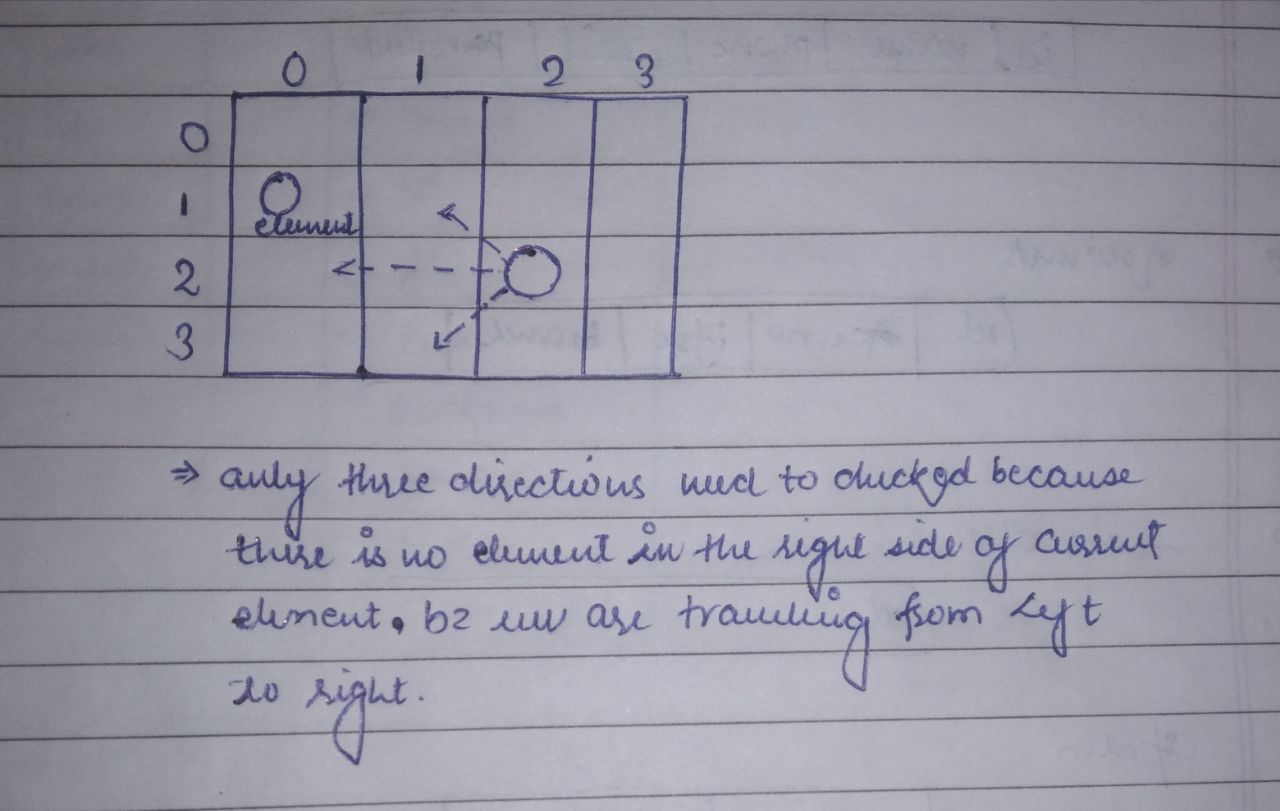 0 1 2 3
0
1
element
2
3
⇒ only three directions need to checked because
there is no element in the right side of current
element. bz we are travelling from left
to right.